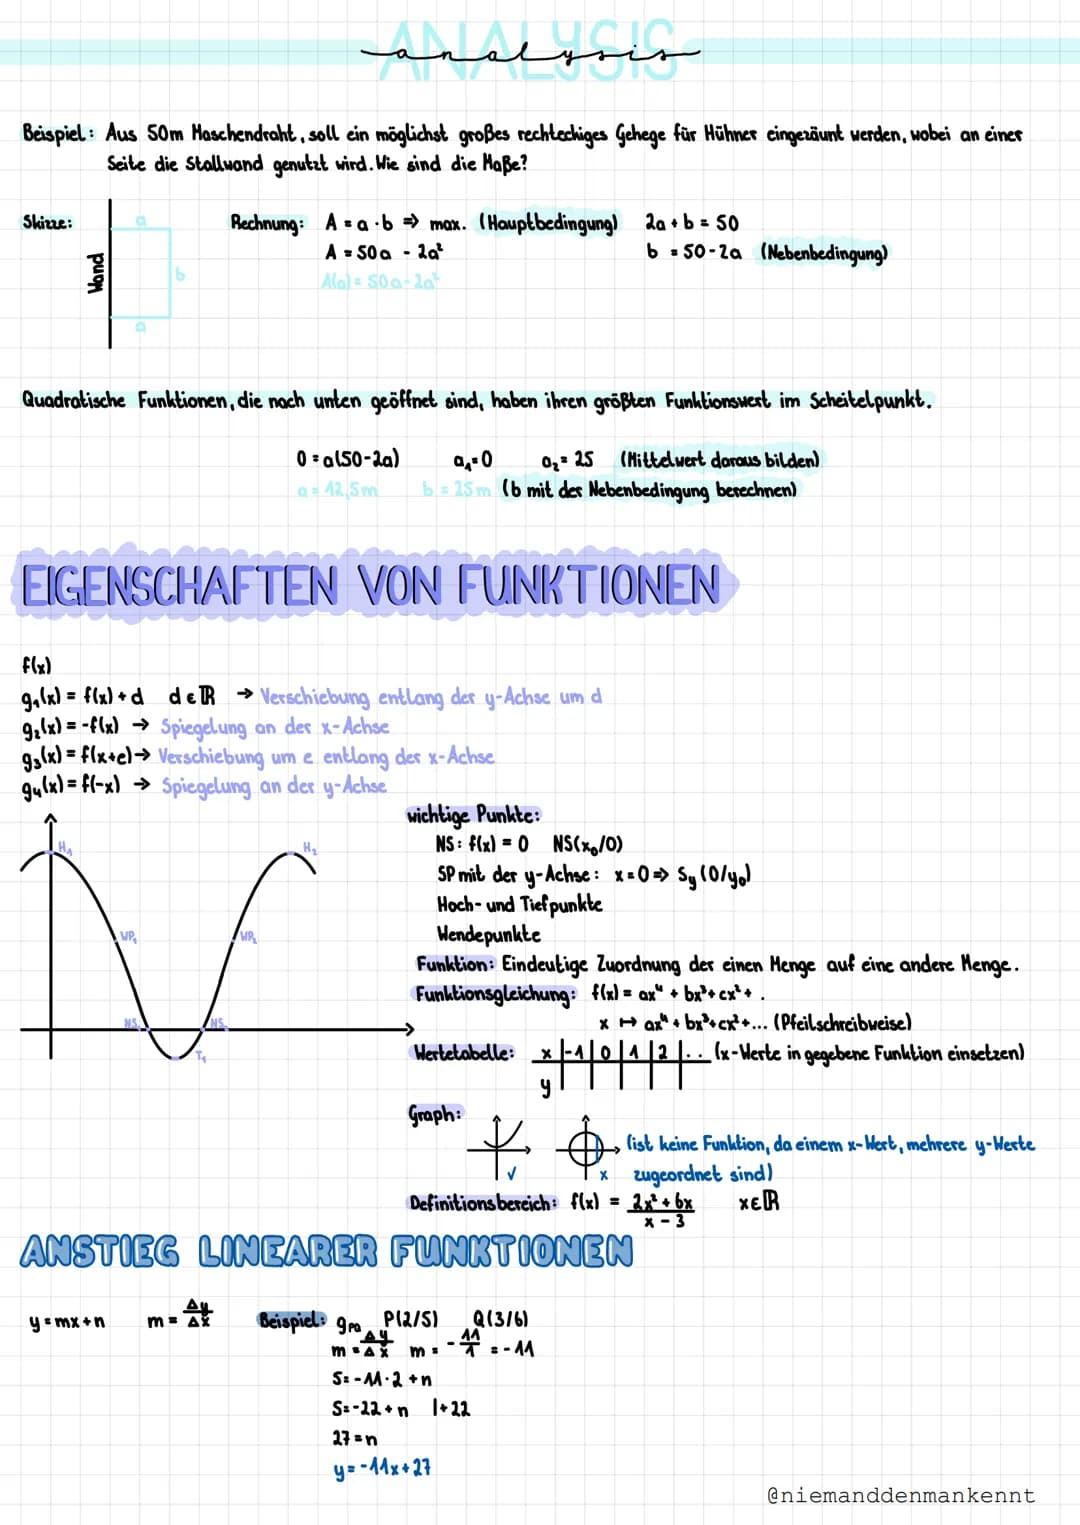 ANALYSIS
analysis
Beispiel: Aus 50m Maschendraht, soll ein möglichst großes rechteckiges Gehege für Hühner eingezäunt werden, wobei an einer
Seite die Stallwand genutzt wird. Wie sind die Maße?
Skizze: a Rechnung: A = a · b ⇒ max. (Hauptbedingung) 2a + b = 50
Wand b A = 50a - 2a² b = 50-2a (Nebenbedingung)
A(a) = 50a-2a²
a
Quadratische Funktionen, die nach unten geöffnet sind, haben ihren größten Funktionswert im Scheitelpunkt.
0 = a(50-2a) a₁=0 a₂= 25 (Mittelwert daraus bilden)
a = 12,5m b = 25m (b mit der Nebenbedingung berechnen)
EIGENSCHAFTEN VON FUNKTIONEN
f(x)
g₁(x) = f(x) + d d ∈ ℝ → Verschiebung entlang der y-Achse um d
g₂(x) = -f(x) → Spiegelung an der x-Achse
g₃(x) = f(x+e) → Verschiebung um e entlang der x-Achse
g₄(x) = f(-x) → Spiegelung an der y-Achse
H₁ H₂
WP₁ WP₂
NS₁ NS₂
T₁
wichtige Punkte:
NS: f(x) = 0 NS(x₀/0)
SP mit der y-Achse: x = 0 ⇒ Sy (0/y₀)
Hoch- und Tiefpunkte
Wendepunkte
Funktion: Eindeutige Zuordnung der einen Menge auf eine andere Menge.
Funktionsgleichung: f(x) = ax⁴ + bx³+ cx²+ .
x ↦ ax⁴ + bx³+cx²+... (Pfeilschreibweise)
Wertetabelle: x |-1|0|1|2|.. (x-Werte in gegebene Funktion einsetzen)
y
Graph:
✓ x (ist keine Funktion, da einem x-Wert, mehrere y-Werte
zugeordnet sind)
Definitionsbereich: f(x) = 2x² + 6x x∈ℝ
x - 3
ANSTIEG LINEARER FUNKTIONEN
y = mx + n m = Δy/Δx Beispiel: g PQ P(2/5) Q(3/6)
m = Δy/Δx m = - 11/1 = - 11
5 = - 11 · 2 + n
5 = -22 + n |+ 22
27 = n
y = -11x + 27
@niemanddenmankennt